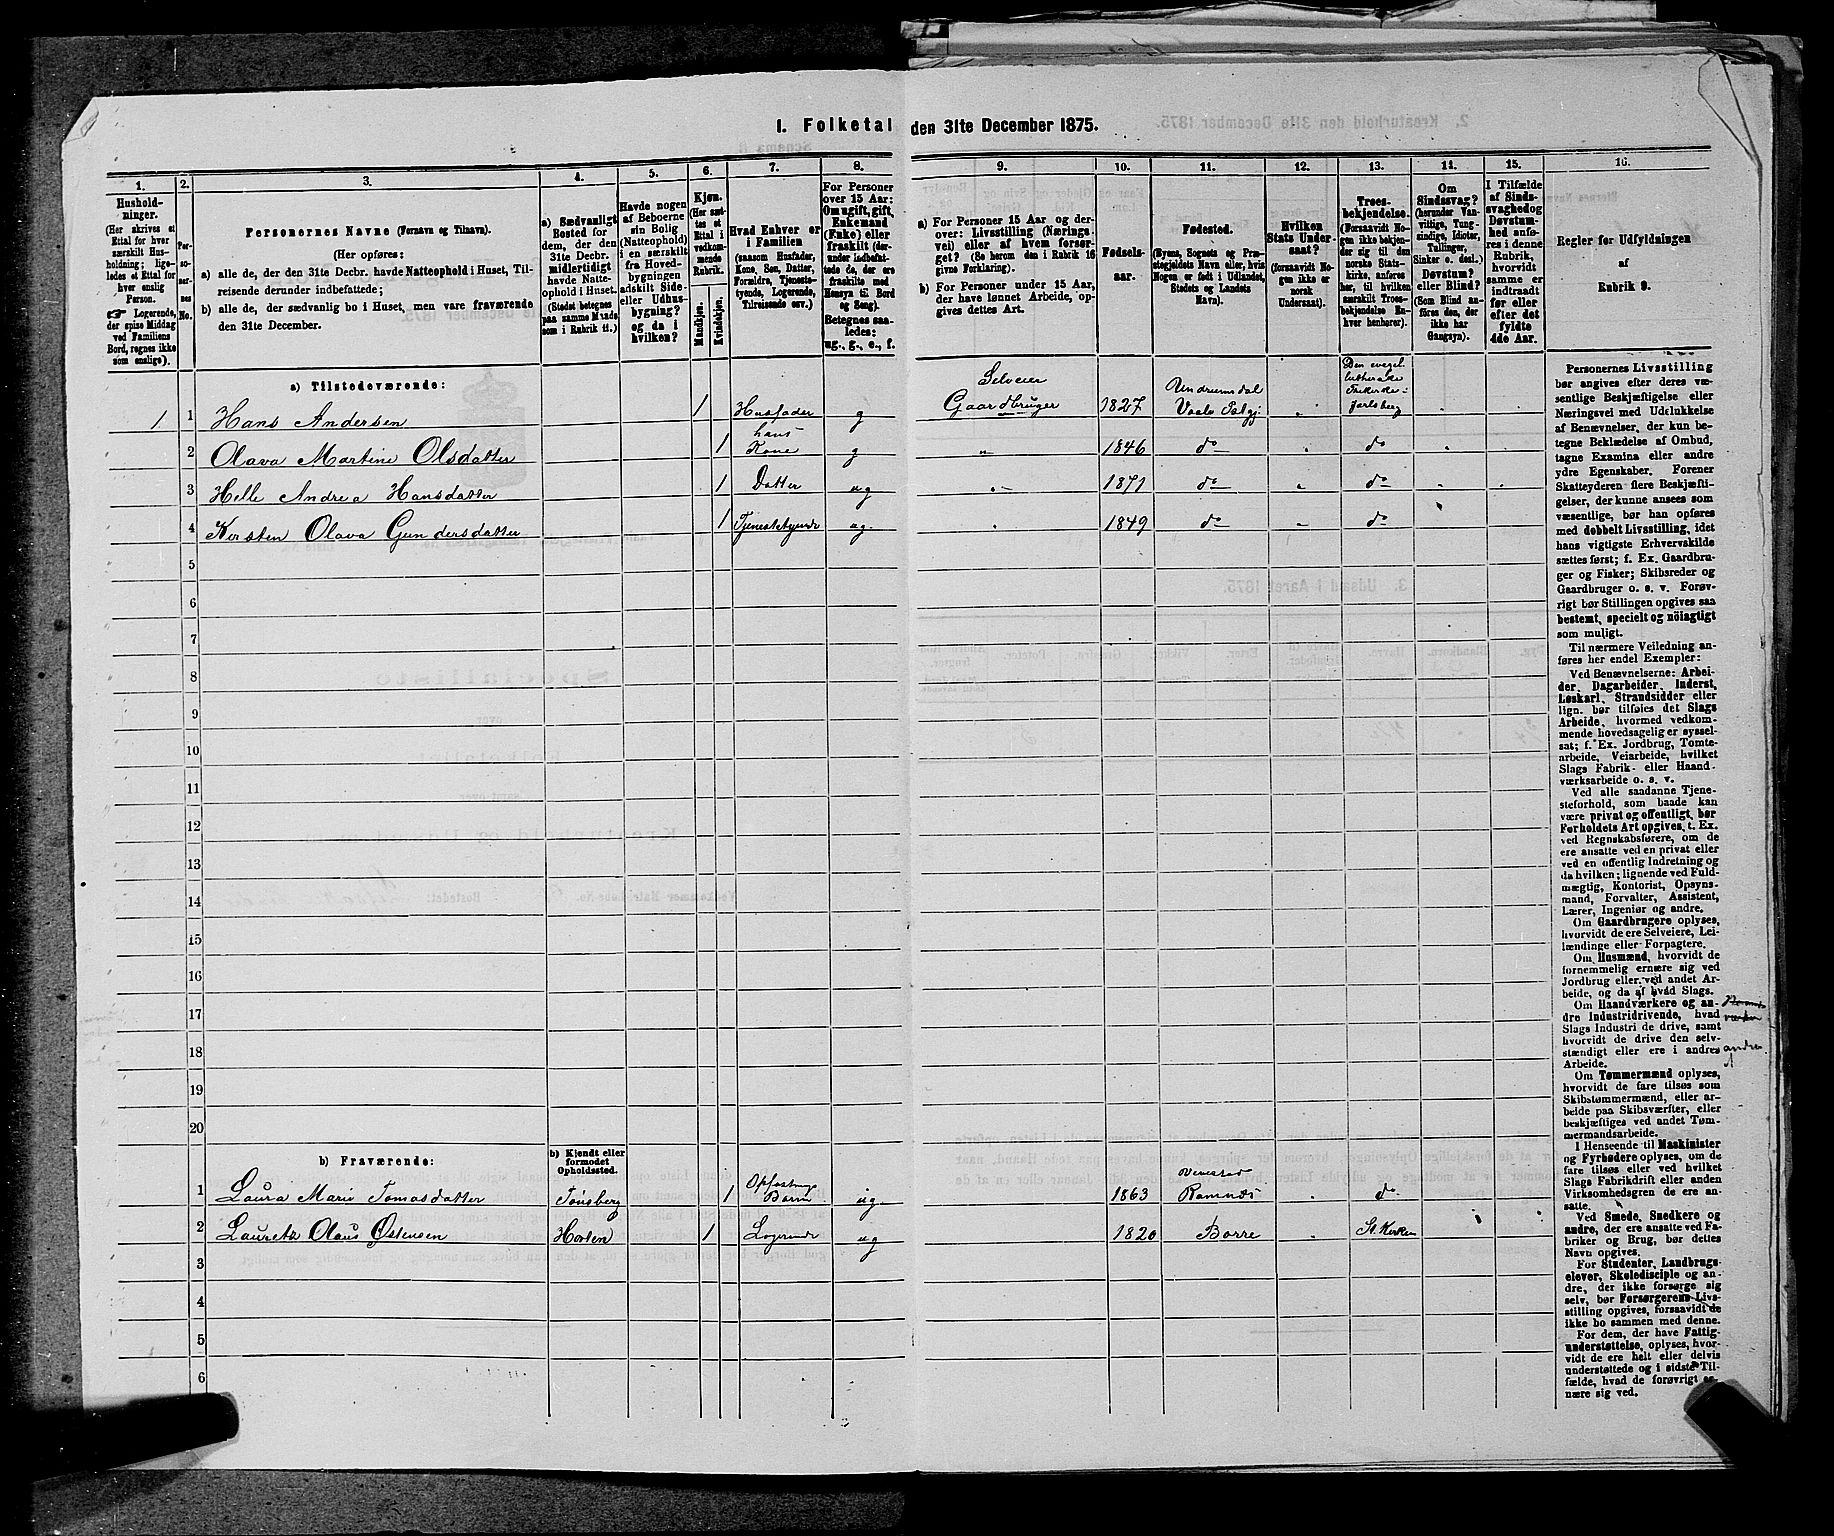 1. Folketal den 31te December 1875.
1. 2. 3. 4. 5. 6. 7. 8. 9. 10. 11. 12. 13. 14. 15. 16.
Husholdninger.
(Her skrives et
Ettal for hver
særskilt Husholdning; ligeledes
et Ettal for
hver enslig
Person.
☞ Logerende,
der spise Middag
ved Familiens
Bord, regnes ikke
som enslige).
Personernes No.
Personernes Navne (Fornavn og Tilnavn).
(Her opføres:
a) alle de, der den 31te Decbr. havde Natteophold i Huset, Tilreisende derunder indbefattede;
b) alle de, der sædvanlig bo i Huset, men vare fraværende
den 31te December.
a) Sædvanligt
Bosted for
dem, der den
31te Decbr.
midlertidigt
havde Natteophold i Huset.
(Stedet betegnes
paa samme Maade
som i Rubrik 11.)
Havde nogen
af Beboerne
sin Bolig
(Natteophold)
i en særskilt
fra Hovedbygningen
adskilt Side-
eller Udhusbygning?
og da i
hvilken?
Kjøn.
(Her sættes et
Ettal i
vedkommende
Rubrik.
Mandkjøn. Kvindekjøn.
Hvad Enhver er
i Familien
(saasom Husfader,
Kone, Søn, Datter,
Forældre, Tjenestetyende, Logerende,
Tilreisende osv.)
For Personer
over 15 Aar:
Om ugift, gift,
Enkemand
(Enke) eller
fraskilt
Betegnes saaledes:
ug., g., e., f.
a) For Personer 15 Aar og derover: Livsstilling (Næringsvei) eller af hvem forsørget? (Se herom den i Rubrik 16
givne Forklaring).
b) For Personer under 15 Aar,
der have lønnet Arbeide, opgives dettes Art.
Fødselsaar.
Fødested.
(Byens, Sognets og Præstegjeldets Navn eller, hvis
Nogen er født i Udlandet,
Stedets og Landets
Navn).
Hvilken
Stats Undersaat?
(forsaavidt Nogen ikke er
norsk
Undersaat).
Troesbekjendelse.
(Forsaavidt Nogen ikke bekjender sig til den
norske Statskirke, anføres
her, til hvilken
særskilt Troesbekjendelse Enhver henhører).
Om
Sindssvag?
(herunder Vanvittige, Tungsindige, Idioter,
Tullinger,
Sinker o. desl.)
Døvstum?
eller Blind?
(Som Blind anføres den, der
ikke har
Gangsyn).
I Tilfælde
af Sindssvaghed og
Døvstumhed anføres i denne
Rubrik,
hvorvidt
samme er
indtraadt
før eller
efter det
fyldte
4de Aar.
Regler for Udfyldningen
af
Rubrik 9.
a) Tilstedeværende:
1 1 Hans Andersen 1 Husfader g Selveier Gaardbruger 1827 Undrumsdal Vaale Pstgj. Den evgel. lutherske Frikirke Jarlsberg
2 Olava Martine Olsdatter 1 hans Kone g 1846 do do
3 Helle Andrea Hansdatter 1 Datter ug 1871 do do
4 Kersten Olava Gundersdatter 1 Tjenestetyende ug. 1849 do do
5
6
7
8
9
10
11
12
13
14
15
16
17
18
19
20
b) Fraværende:
b) Kjendt eller
formodet
Opholdssted.
1 Laura Marie Tomasdatter Tønsberg 1 Opfostrings Barn ug. 1863 Ramnæs do
2 Lauretz Olaus Østensen Horten 1 Logerende ug 1820 Borre St. Kirken
3
4
5
6
Personernes Livsstilling
bør angives efter deres væsentlige Beskjæftigelse eller
Næringsvei med Udelukkelse
af Benævnelser, der kun betegne Beklædelse af Ombud,
tagne Examina eller andre
ydre Egenskaber. Forener
Skatteyderen flere Beskjæftigelser, der kunne ansees som
væsentlige, bør han opføres
med dobbelt Livsstilling, idet
hans vigtigste Erhvervskilde
sættes først; f. Ex. Gaardbruger og Fisker; Skibsreder og
Gaardbruger o. s. v. Forøvrigt bør Stillingen opgives saa
bestemt, specielt og nöiagtigt
som muligt.
Til nærmere Veiledning anføres her endel Exempler:
Ved Benævnelserne: Arbeider, Dagarbeider, Inderst,
Løskarl, Strandsidder eller
lign. bør tilføies det Slags
Arbeide, hvormed vedkommende hovedsagelig er sysselsat; f. Ex. Jordbrug, Tomtearbeide, Veiarbeide, hvilket
Slags Fabrik- eller Haandværksarbeide o. s. v.
Ved alle saadanne Tjenesteforhold, som baade kan
være privat og offentligt, bør
Forholdets Art opgives, t. Ex.
ved Regnskabsførere, om de
ere ansatte ved en privat eller
ved en offentlig Indretning og
da hvilken; lignende ved Fuldmægtig, Kontorist, Opsynsmand, Forvalter, Assistent,
Lærer, Ingeniør og andre.
Om Gaardbrugere oplyses,
hvorvidt de ere Selveiere, Leilændinge eller Forpagtere.
Om Husmænd, hvorvidt de
fornemmelig ernære sig ved
Jordbrug eller ved andet Arbeide, og da af hvad Slags.
Om Haandværkere og andre Industridrivende, hvad
Slags Industri de drive, samt
hvorvidt de drive den selvstændigt eller ere i andres
Arbeide.
Om Tømmermænd oplyses,
hvorvidt de fare tilsøs som
Skibstømmermænd, eller arbeide paa Skibsværfter, eller
beskjæftiges ved andet Tømmermandsarbeide.
I Henseende til Maskinister
og Fyrbødere oplyses, om de
fare tilsøs eller ved hvilket
Slags Fabrikdrift eller anden
Virksomhedsgren de ere ansatte.
Ved Smede, Snedkere og
andre, der ere ansatte ved Fabriker og Brug, bør dettes
Navn opgives.
For Studenter, Landbrugselever, Skoledisciple og andre, der ikke forsørge sig
selv, bør Forsørgerens Livsstilling opgives, forsaavidt de
ikke bo sammen med denne.
For dem, der have Fattigunderstøttelse, oplyses, hvorvidt de ere helt eller delvis
understøttede og i sidste Tilfælde, hvad de forøvrigt ernære sig ved.